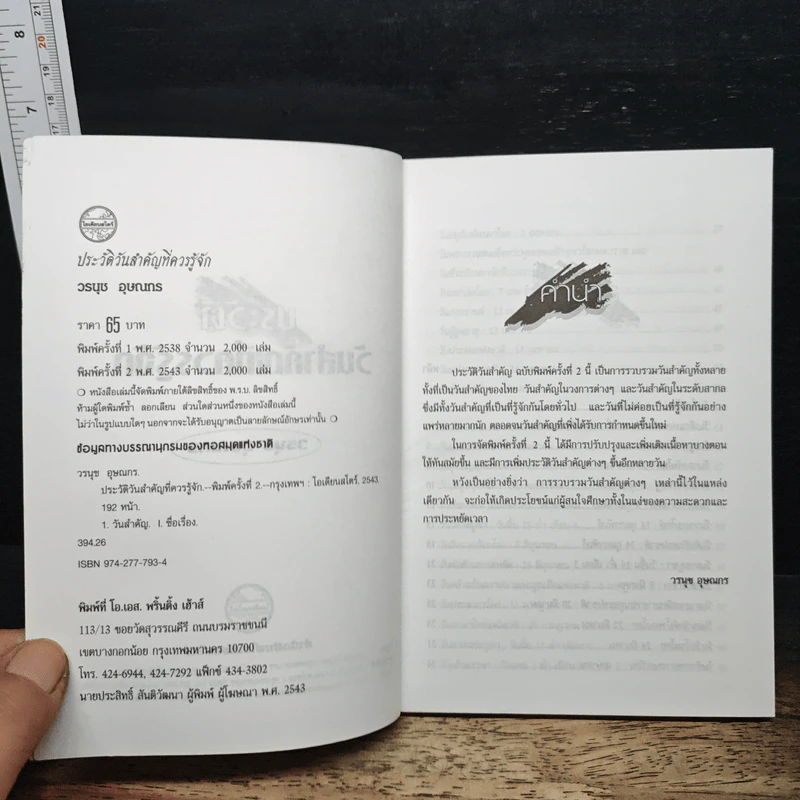 โอเดียนสโตร์
ประวัติวันสำคัญที่ควรรู้จัก
วรนุช อุษณกร
ราคา 65 บาท
พิมพ์ครั้งที่ 1 พ.ศ. 2538 จำนวน 2,000 เล่ม
พิมพ์ครั้งที่ 2 พ.ศ. 2543 จำนวน 2,000 เล่ม
❍ หนังสือเล่มนี้จัดพิมพ์ภายใต้ลิขสิทธิ์ของ พ.ร.บ. ลิขสิทธิ์
ห้ามผู้ใดพิมพ์ซ้ำ ลอกเลียน ส่วนใดส่วนหนึ่งของหนังสือเล่มนี้
ไม่ว่าในรูปแบบใดๆ นอกจากจะได้รับอนุญาตเป็นลายลักษณ์อักษรเท่านั้น ❍
ข้อมูลทางบรรณานุกรมของหอสมุดแห่งชาติ
วรนุช อุษณกร.
ประวัติวันสำคัญที่ควรรู้จัก.--พิมพ์ครั้งที่ 2.--กรุงเทพฯ : โอเดียนสโตร์, 2543.
192 หน้า.
1. วันสำคัญ. I. ชื่อเรื่อง.
394.26
ISBN 974-277-793-4
พิมพ์ที่ โอ.เอส. พริ้นติ้ง เฮ้าส์
113/13 ซอยวัดสุวรรณคีรี ถนนบรมราชชนนี
เขตบางกอกน้อย กรุงเทพมหานคร 10700
โทร. 424-6944, 424-7292 แฟ็กซ์ 434-3802
นายประสิทธิ์ สันติวัฒนา ผู้พิมพ์ ผู้โฆษณา พ.ศ. 2543
คำนำ
ประวัติวันสำคัญ ฉบับพิมพ์ครั้งที่ 2 นี้ เป็นการรวบรวมวันสำคัญทั้งหลาย
ทั้งที่เป็นวันสำคัญของไทย วันสำคัญในวงการต่างๆ และวันสำคัญในระดับสากล
ซึ่งมีทั้งวันสำคัญที่เป็นที่รู้จักกันโดยทั่วไป และวันที่ไม่ค่อยเป็นที่รู้จักกันอย่าง
แพร่หลายมากนัก ตลอดจนวันสำคัญที่เพิ่งได้รับการกำหนดขึ้นใหม่
ในการจัดพิมพ์ครั้งที่ 2 นี้ ได้มีการปรับปรุงและเพิ่มเติมเนื้อหาบางตอน
ให้ทันสมัยขึ้น และมีการเพิ่มประวัติวันสำคัญต่างๆ ขึ้นอีกหลายวัน
หวังเป็นอย่างยิ่งว่า การรวบรวมวันสำคัญต่างๆ เหล่านี้ไว้ในแหล่ง
เดียวกัน จะก่อให้เกิดประโยชน์แก่ผู้สนใจศึกษาทั้งในแง่ของความสะดวกและ
การประหยัดเวลา
วรนุช อุษณกร
8
7
21
20
19
18
17